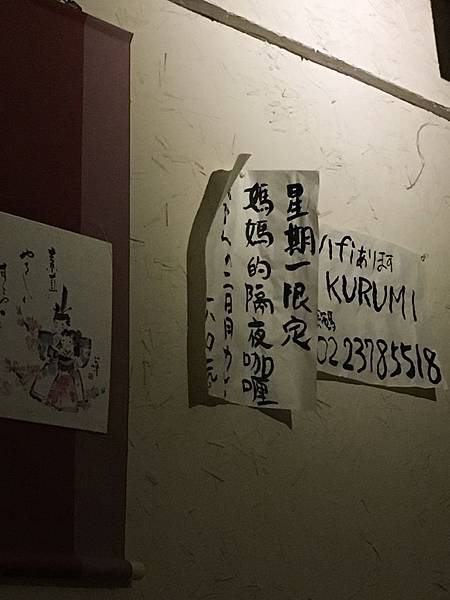 星期一限定
媽媽的隔夜咖喱
さんの二日目カレー
ifiあります
KURUMI
碼
0223785518